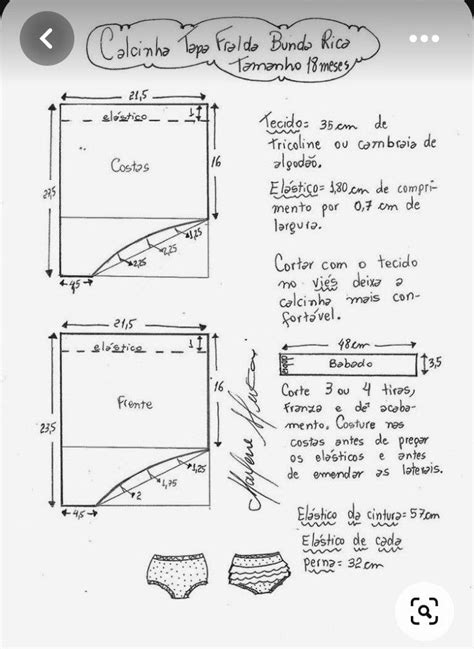 Calcinha Tapa Fralda Bunda Rica
Tamanho 18 meses
21,5
elástico
1
Costas
16
23,5
1,25
2,25
2,25
4,5
Tecido= 35 cm de
tricoline ou cambraia de
algodão.
Elástico= 1,80 cm de compri
mento por 0,7 cm de
largura.
Cortar com o tecido
no viés deixa a
calcinha mais con-
fortável.
21,5
elástico
1
Frente
16
23,5
1,25
1,75
2
4,5
48cm
Babado
3,5
Corte 3 ou 4 tiras,
Franza e dê acaba-
mento. Costure nas
costas antes de pregar
os elásticos e antes
de emendar as laterais.
Marlene Mukai
Elástico da cintura= 57cm
Elástico de cada
perna= 32 cm